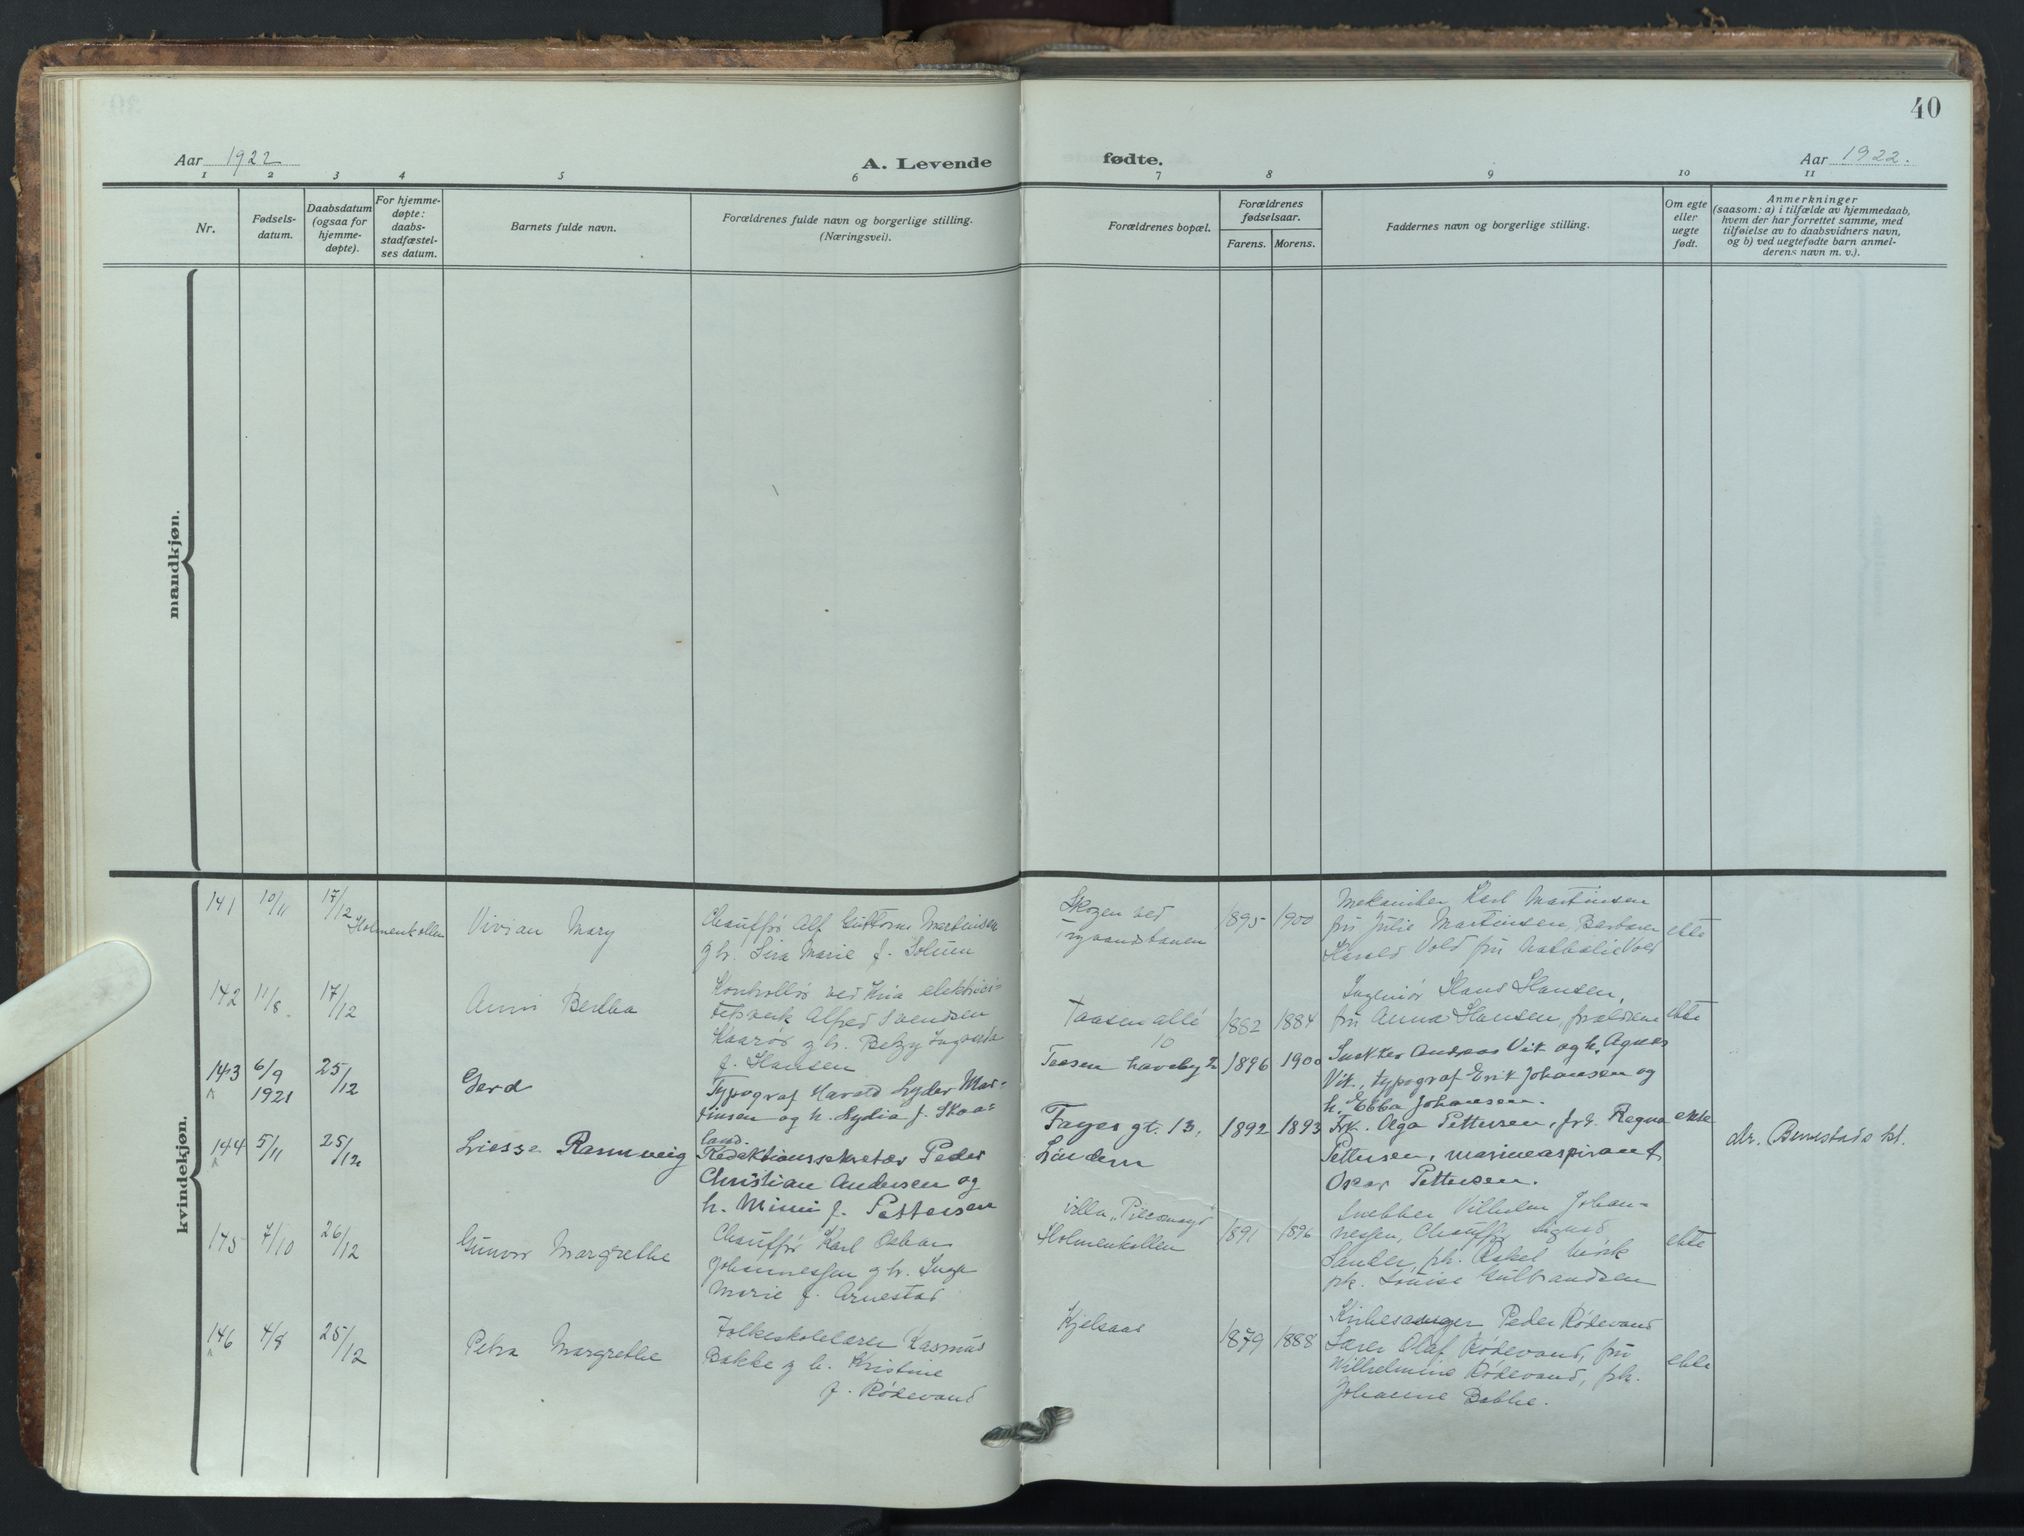 40
Aar 1922
A. Levende
fødte.
Aar 1922.
1 2 3 4 5 6 7 8 9 10 11
Nr.
Fødsels-
datum.
Daabsdatum
(ogsaa for
hjemme-
døpte).
For hjemme-
døpte:
daabs-
stadfæstel-
ses datum.
Barnets fulde navn.
Forældrenes fulde navn og borgerlige stilling.
(Næringsvei).
Forældrenes bopæl.
Forældrenes
fødselsaar.
Farens. Morens.
Faddernes navn og borgerlige stilling.
Om egte
eller
uegte
født.
Anmerkninger
(saasom: a) i tilfælde av hjemmedaab,
hvem der har forrettet samme, med
tilføielse av to daabsvidners navn,
og b) ved uegtefødte barn anmel-
derens navn m. v.).
mandkjøn.
kvindekjøn.
141 10/11 17/12 Holmenkollen
Vivian Mary
Chauffør Alf Guttorm Martinsen
g hr. Lira Marie f. Solum
Skogen ved
Tryvandsbanen
1895 1900
Mekaniker Karl Martinsen
fru Julie Martinsen, Barberer
Harald Vold fru Nathalie Vold
ekte
142 11/8 17/12
Anni Bertha
Kontrollør ved Kria elektrici-
tetsverk Alfred Svendsen
Kaarør g hr. Betzy Ingvarda
f. Hansen
Taasen allé
10
1882 1884
Ingeniør Hans Hansen,
fru Anna Hansen, forældrene
ekte
143 6/9 1921 25/12
Gerd
Typograf Harald Lyder Mar-
tinsen og h. Lydia f. Skaa-
land.
Taasen haveby 2
1896 1900
Snekker Andreas Vik og h. Agnes
Vik, typograf Erik Johansen og
h. Ebba Johansen.
144 5/11 25/12
Liesse Rannveig
Redaktionssekretær Peder
Christian Andersen og
h. Mimi f. Pettersen
Fayes gt. 13,
Lindern
1892 1893
Frk. Olga Pettersen, frk. Ragna
Pettersen, marineaspirant
Oscar Pettersen.
ekte
145 7/10 26/12
Gunvor Margrethe
Chauffør Karl Oskar
Johannessen g hr. Inga
Marie f. Arnestad
villa
Holmenkollen
1891 1896
Snekker Vilhelm Johan-
nessen, Chauffør Sigurd
Sander, pk. Rakel Mørk
pk. Louise Gulbrandsen
ekte
146 4/8 25/12
Petra Margrethe
Folkeskolelærer Rasmus
Bakke g hr. Kristine
f. Rødevand
Kjelsaas
1879 1888
Kirkesanger Peder Rødevand
Lærer Olaf Rødevand, fru
Wilhelmine Rødevand, pk.
Johanne Bakke.
ekte